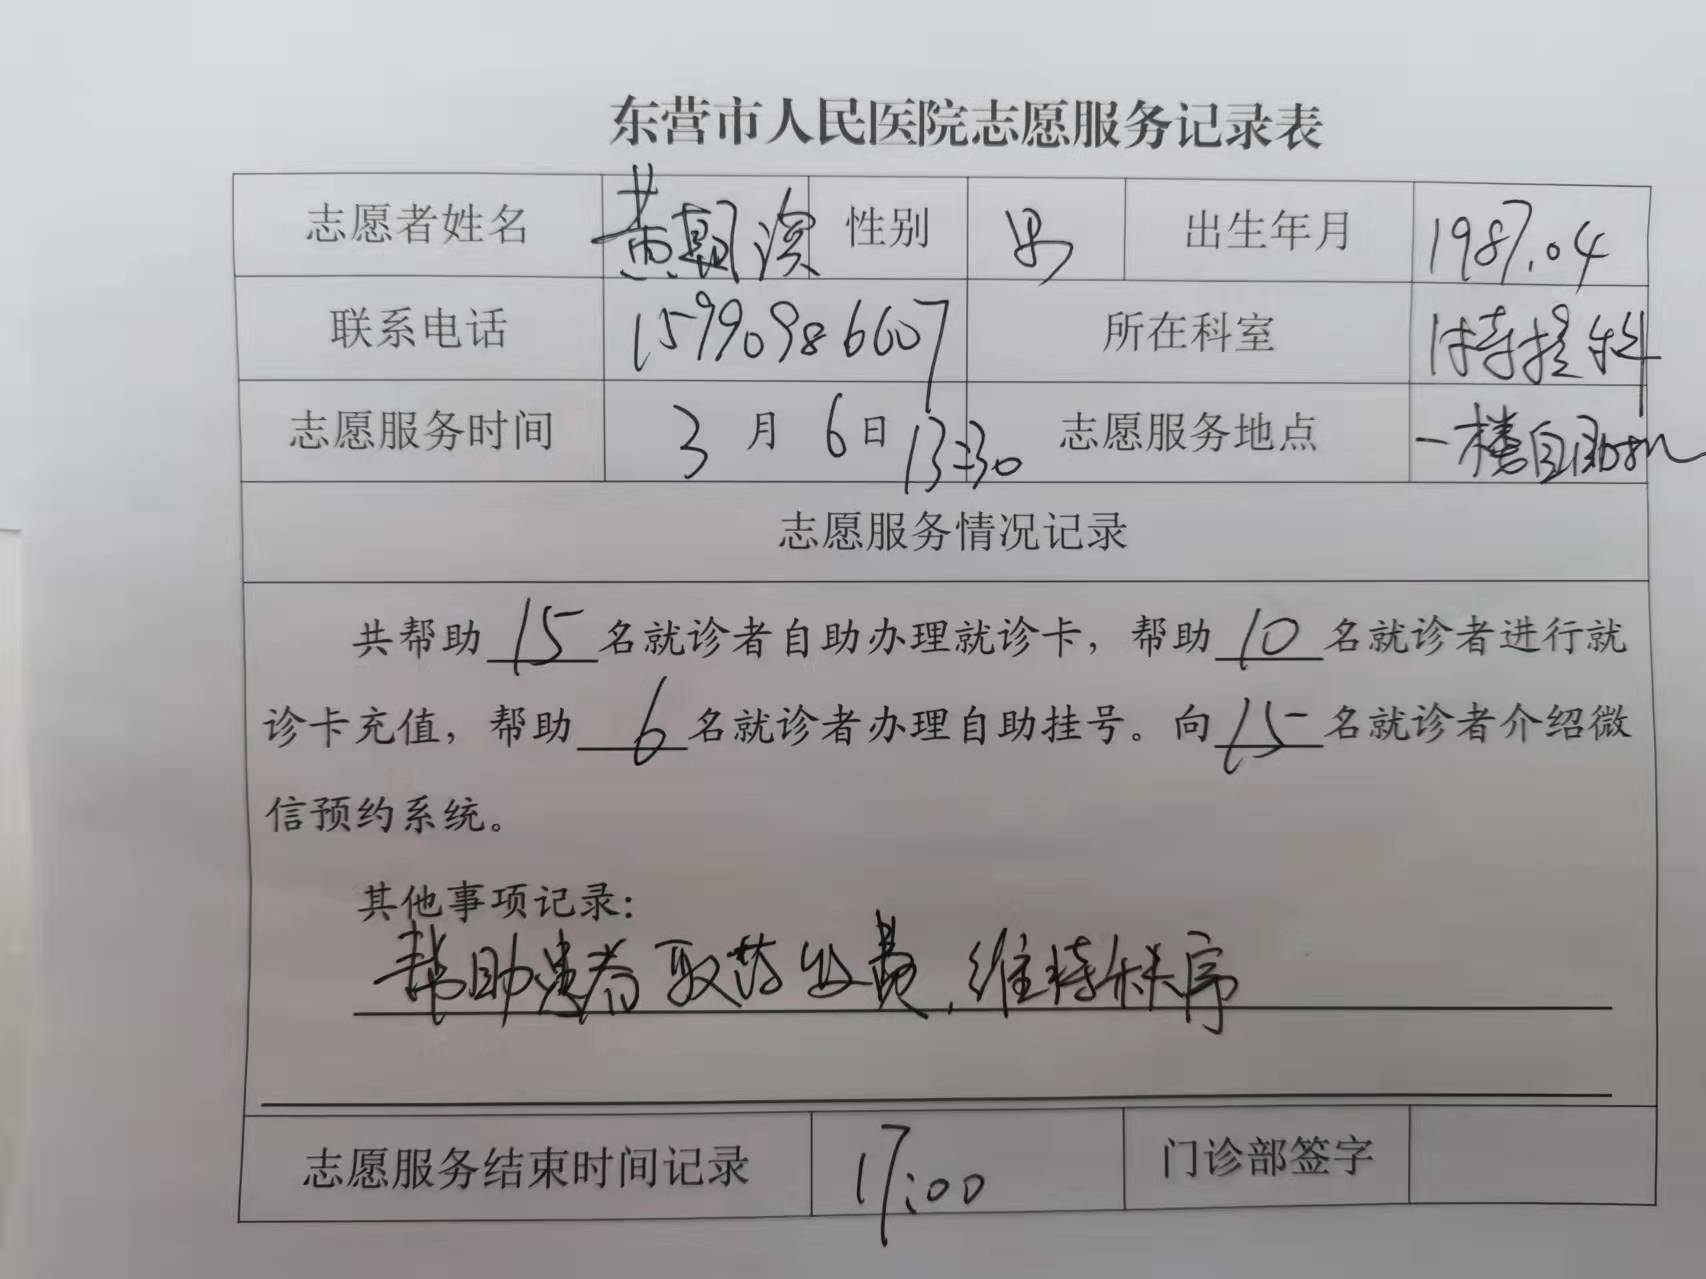 东营市人民医院志愿服务记录表
志愿者姓名 黄朝滨 性别 男 出生年月 1987.04
联系电话 15990986607 所在科室
志愿服务时间 3月6日 13:30 志愿服务地点 一楼自助
志愿服务情况记录
共帮助 15 名就诊者自助办理就诊卡，帮助 10 名就诊者进行就
诊卡充值，帮助 6 名就诊者办理自助挂号。向 15 名就诊者介绍微
信预约系统。
其他事项记录：
帮助患者取药 缴费，维持秩序
志愿服务结束时间记录 17:00 门诊部签字